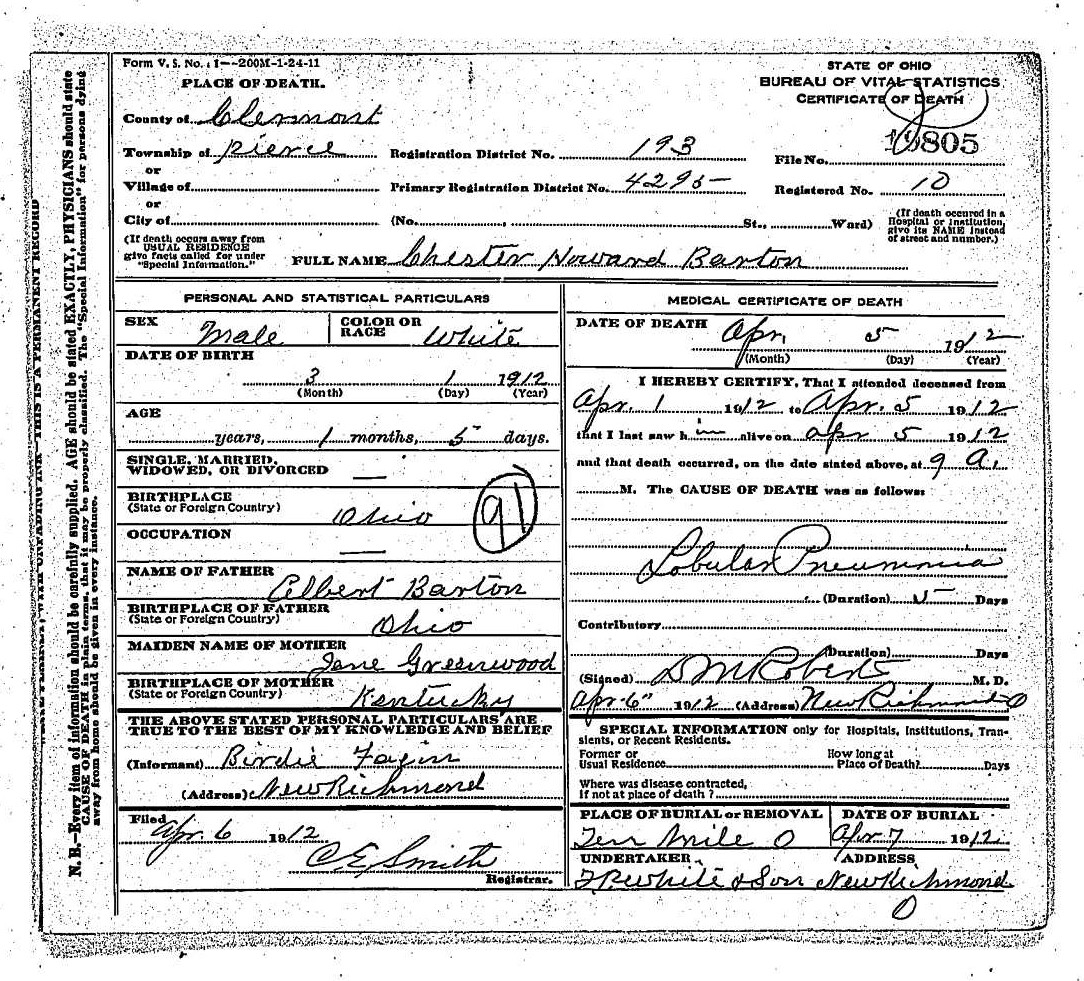 Form V. S. No. 1—200M-1-24-11
PLACE OF DEATH.
STATE OF OHIO
BUREAU OF VITAL STATISTICS
CERTIFICATE OF DEATH
County of Clermont
Township of Pierce
Registration District No. 193
File No. 19805
or
Village of
Primary Registration District No. 4295
Registered No. 10
or
City of
(No. , St., Ward)
(If death occured in a Hospital or Institution, give its NAME instead of street and number.)
(If death occurs away from USUAL RESIDENCE give facts called for under "Special Information.")
FULL NAME Chester Howard Barton
PERSONAL AND STATISTICAL PARTICULARS
SEX Male
COLOR OR RACE White
DATE OF BIRTH
3 1 1912
(Month) (Day) (Year)
AGE
years, 1 months, 5 days.
SINGLE, MARRIED,
WIDOWED, OR DIVORCED —
BIRTHPLACE
(State or Foreign Country) Ohio
91
OCCUPATION
—
NAME OF FATHER
Elbert Barton
BIRTHPLACE OF FATHER
(State or Foreign Country) Ohio
MAIDEN NAME OF MOTHER
Jane Greenwood
BIRTHPLACE OF MOTHER
(State or Foreign Country) Kentucky
THE ABOVE STATED PERSONAL PARTICULARS ARE
TRUE TO THE BEST OF MY KNOWLEDGE AND BELIEF
(Informant) Birdie Fagin
(Address) New Richmond
Filed
Apr. 6 1912
C E Smith
Registrar.
MEDICAL CERTIFICATE OF DEATH
DATE OF DEATH Apr. 5 1912
(Month) (Day) (Year)
I HEREBY CERTIFY, That I attended deceased from
Apr. 1 1912 to Apr. 5 1912
that I last saw him alive on Apr 5 1912
and that death occurred, on the date stated above, at 9 a.
M. The CAUSE OF DEATH was as follows:
Lobular Pneumonia
(Duration) 5 Days
Contributory
(Duration) Days
(Signed) D M Roberts M. D.
Apr 6" 1912 (Address) New Richmond O
SPECIAL INFORMATION only for Hospitals, Institutions, Tran-
sients, or Recent Residents.
Former or
Usual Residence
How long at
Place of Death? Days
Where was disease contracted,
If not at place of death?
PLACE OF BURIAL or REMOVAL
Ten Mile O
DATE OF BURIAL
Apr 7 1912
UNDERTAKER
ADDRESS
White & Son New Richmond
O
N. B.—Every item of information should be carefully supplied. AGE should be stated EXACTLY, PHYSICIANS should state
CAUSE OF DEATH in plain terms, that it may be properly classified. The "Special Information" for persons dying
away from home should be given in every instance.
UNFADING INK—THIS IS A PERMANENT RECORD